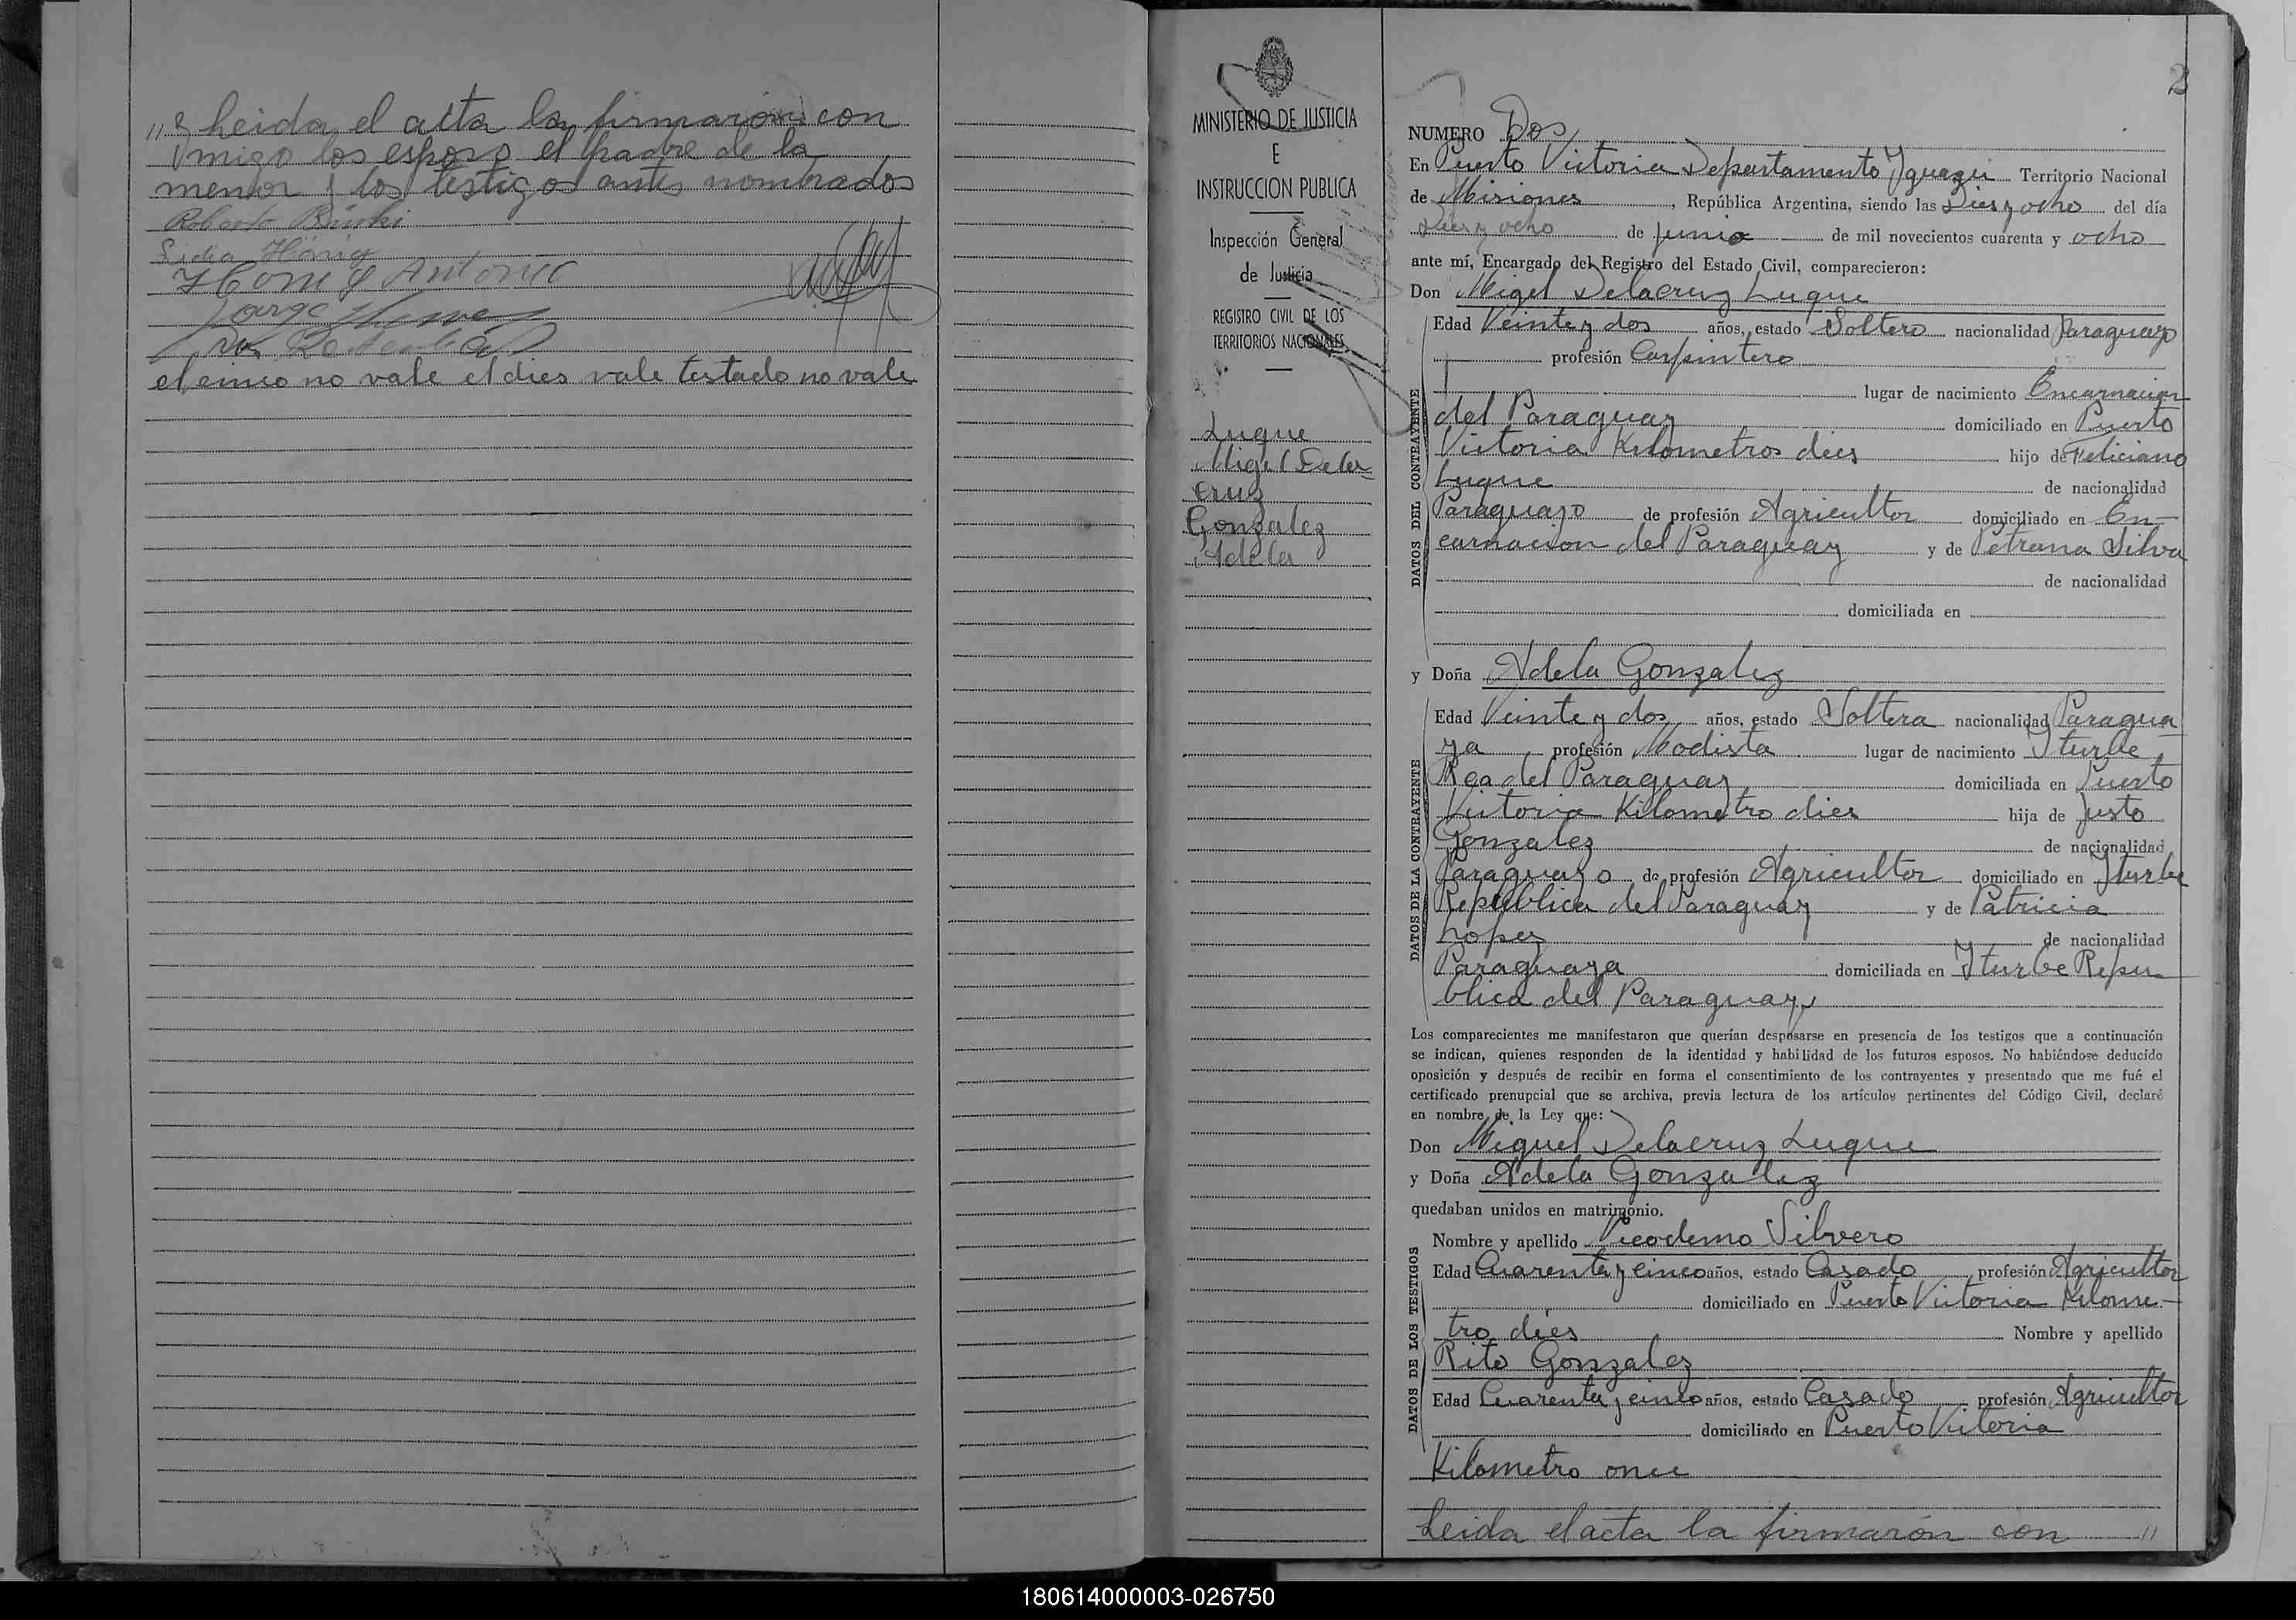 " Leida el acta la firmarón con
migo los esposo el padre de la
menor y los testigos antes nombrados
Roberto Bürki
Lidia Hönig
Honig Antonio
Jorge
el cinco no vale el dies vale testado no vale
MINISTERIO DE JUSTICIA
E
INSTRUCCION PUBLICA
Inspección General
de Justicia
REGISTRO CIVIL DE LOS
TERRITORIOS NACIONALES
Luque
Migel Dela
Cruz
Gonzalez
Adela
2
NUMERO Dos
En Puerto Victoria Departamento Yguazu Territorio Nacional
de Misiones, República Argentina, siendo las Dies y ocho del día
Dies y ocho de junio de mil novecientos cuarenta y ocho
ante mí, Encargado del Registro del Estado Civil, comparecieron:
Don Migel Delacruz Luque
DATOS DEL CONTRAYENTE
Edad Veinte y dos años, estado Soltero nacionalidad Paraguayo
profesión Carpintero
lugar de nacimiento Encarnacion
del Paraguay domiciliado en Puerto
Victoria Kilometros dies hijo de Feliciano
Luque de nacionalidad
Paraguayo de profesión Agricultor domiciliado en En-
carnacion del Paraguay y de Petrona Silva
de nacionalidad
domiciliada en
y Doña Adela Gonzalez
DATOS DE LA CONTRAYENTE
Edad Veinte y dos años, estado Soltera nacionalidad Paragua
ya profesión Modista lugar de nacimiento Yturbe
Rca del Paraguay domiciliada en Puerto
Victoria Kilometro dies hija de Justo
Gonzalez de nacionalidad
Paraguayo de profesión Agricultor domiciliado en Yturbe
Republica del Paraguay y de Patricia
Lopez de nacionalidad
Paraguaya domiciliada en Yturbe Repu
blica del Paraguay
Los comparecientes me manifestaron que querían desposarse en presencia de los testigos que a continuación
se indican, quienes responden de la identidad y habilidad de los futuros esposos. No habiéndose deducido
oposición y después de recibir en forma el consentimiento de los contrayentes y presentado que me fué el
certificado prenupcial que se archiva, previa lectura de los artículos pertinentes del Código Civil, declaré
en nombre de la Ley que:
Don Miguel Delacruz Luque
y Doña Adela Gonzalez
quedaban unidos en matrimonio.
DATOS DE LOS TESTIGOS
Nombre y apellido Nicodemo Silvero
Edad Cuarenta y cinco años, estado Casado profesión Agricultor
domiciliado en Puerto Victoria Kilome-
tro dies Nombre y apellido
Rito Gonzalez
Edad Cuarenta y cinco años, estado Casado profesión Agricultor
domiciliado en Puerto Vitoria
Kilometro once
Leida el acta la firmarón con "
180614000003-026750